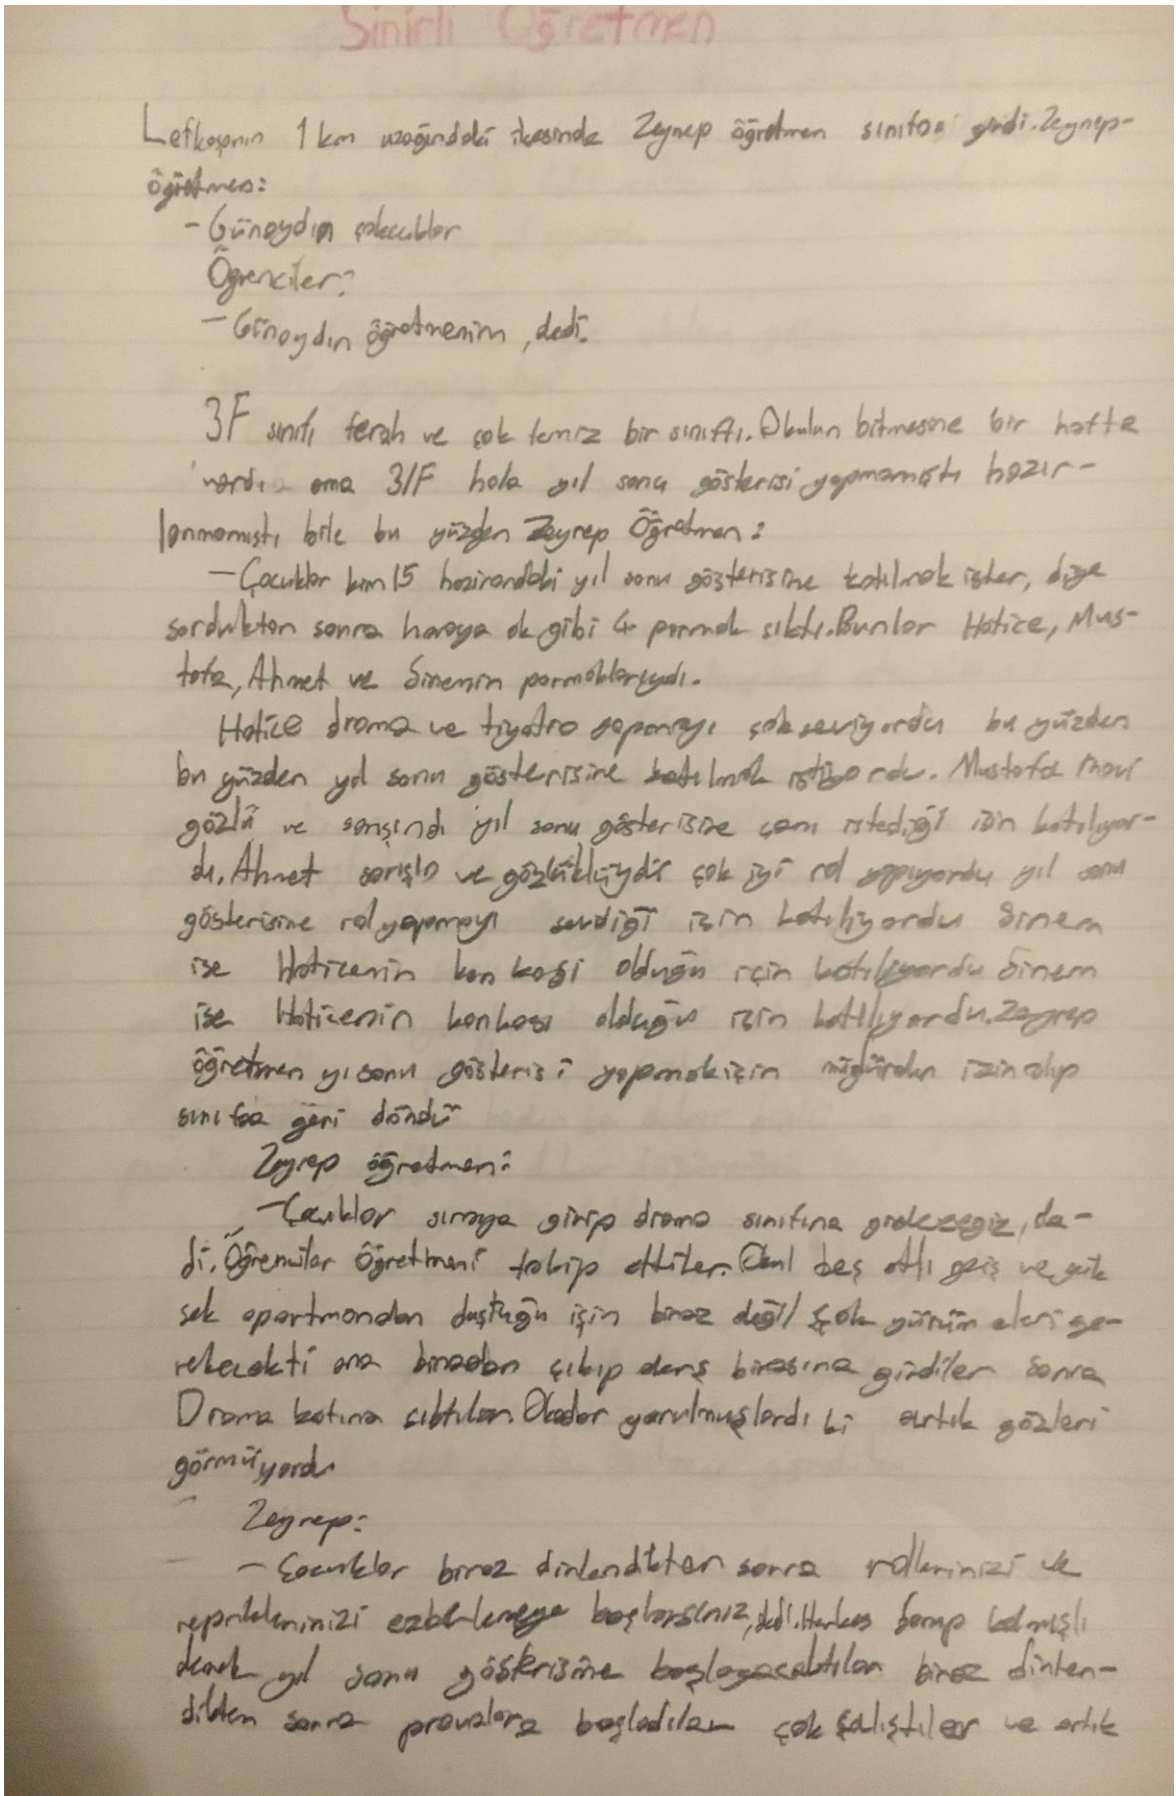 Sinirli Öğretmen
Lefkoşanın 1 km uzağındaki ilkesinde Zeynep öğretmen sınıfa girdi. Zeynep-
öğretmen:
- Günaydın çokcuklar
Öğrenciler:
- Günaydın öğretmenim, dedi.
3F sınıfı ferah ve çok temiz bir sınıftı. Okulun bitmesine bir hafta
vardı ama 3/F hala yıl sonu gösterisi yapmamıştı hazır-
lanmamıştı bile bu yüzden Zeynep Öğretmen:
- Çocuklar kim 15 hazirandaki yıl sonu gösterisine katılmak ister, diye
sorduktan sonra havaya ok gibi 4 parmak çıktı. Bunlar Hatice, Mus-
tafa, Ahmet ve Sinemin parmaklarıydı.
Hatice drama ve tiyatro yapmayı çok seviyordu bu yüzden
bu yüzden yıl sonu gösterisine katılmak istiyordu. Mustafa mavi
gözlü ve sarışındı yıl sonu gösterisine canı istediği için katılıyor-
du. Ahmet sarışın ve gözlüklüydü çok iyi rol yapıyordu yıl sonu
gösterisine rol yapmayı sevdiği için katılıyordu Sinem
ise Haticenin kankası olduğu için katılıyordu Sinem
ise Haticenin kankası olduğu için katılıyordu. Zeynep
öğretmen yı sonu gösterisi yapmak için müdürden izin alıp
sınıfa geri döndü
Zeynep öğretmen:
- Çocuklar sıraya girip drama sınıfına gideceğiz, de-
di. Öğrenciler Öğretmeni takip ettiler. Okul beş atlı geniş ve yük
sek apartmandan oluştuğu için biraz değil çok yürümeleri ge-
rekecekti ana binadan çıkıp ders binasına girdiler sonra
Drama katına çıktılar. Okadar yorulmuşlardı ki artık gözleri
görmüyordu
Zeynep:
- Çocuklar biraz dinlendikten sonra rollerinizi ve
repriklerinizi ezberlemeye başlarsınız, dedi. Herkes kalmıştı
demek yıl sonu gösterisine başlayacaktılar biraz dinlen-
dikten sonra provalara başladılar çok çalıştılar ve artık